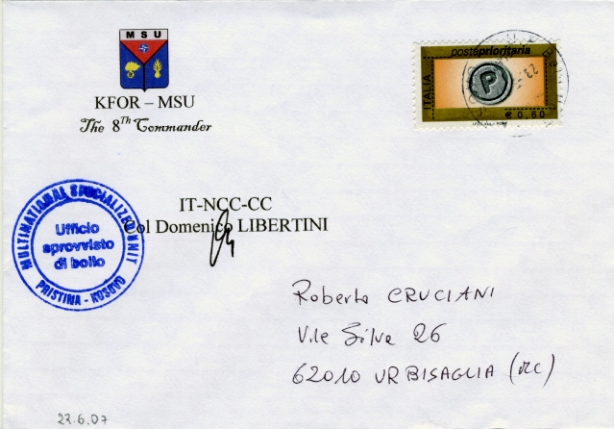 MSU
KFOR – MSU
The 8Th Commander
posteprioritaria
ITALIA
P
€ 0,60
IT-NCC-CC
Col Domenico LIBERTINI
MULTINATIONAL SPECIALIZED UNIT
Ufficio
sprovvisto
di bollo
PRISTINA - KOSOVO
Roberto CRUCIANI
V.le Silva 26
62010 URBISAGLIA (MC)
27.6.07